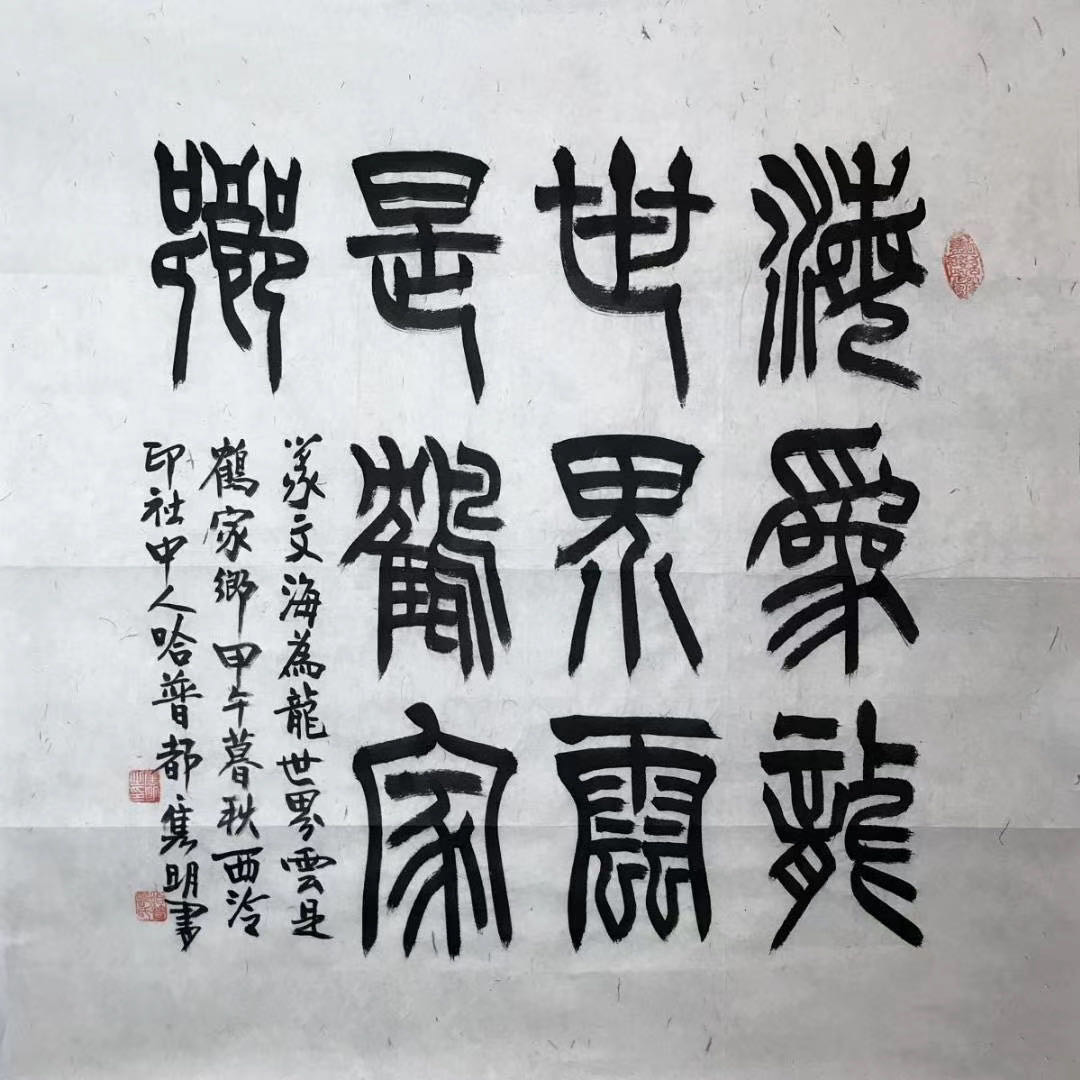 海為龍
世界雲
是鶴家
鄉
篆文海為龍世界雲是
鶴家鄉甲午暮秋西泠
印社中人哈普都隽明書